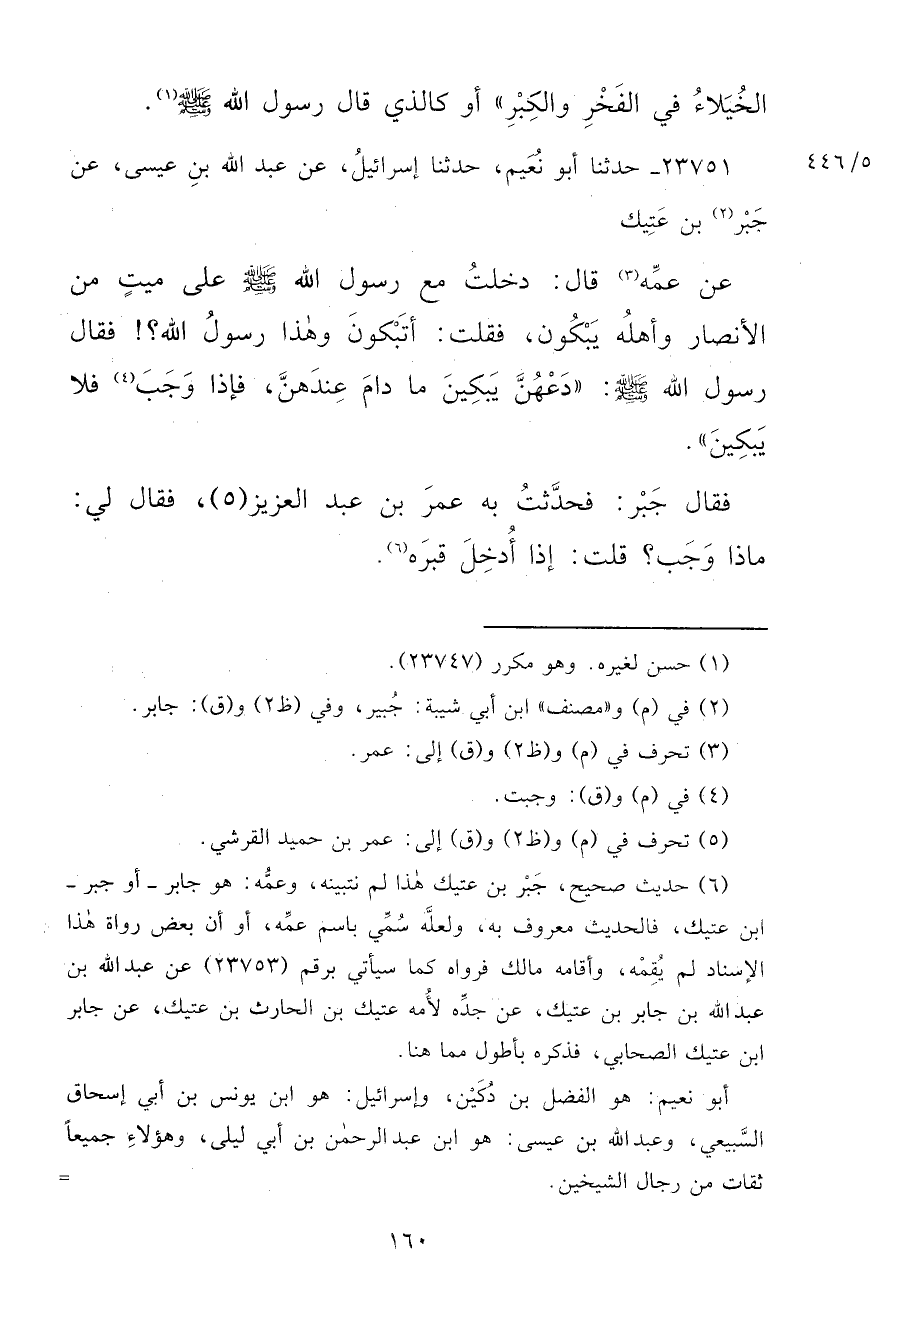 الخُيَلاءُ في الفَخْرِ والكِبْرِ» أو كالذي قال رسول الله ﷺ(١).
٤٤٦/٥
٢٣٧٥١ـ حدثنا أبو نُعَيم، حدثنا إسرائيلُ، عن عبد الله بنِ عيسى، عن
جَبْر(٢) بن عَتِيك
عن عمِّه(٣) قال: دخلتُ مع رسول الله ﷺ على ميتٍ من
الأنصار وأهلُه يَبْكُون، فقلت: أتَبْكونَ وهٰذا رسولُ الله؟! فقال
رسول الله ﷺ: «دَعْهُنَّ يَبكِينَ ما دامَ عِندَهنَّ، فإذا وَجَبَ(٤) فلا
يَبكِينَ».
فقال جَبْر: فحدَّثتُ به عمرَ بن عبد العزيز(٥)، فقال لي:
ماذا وَجَب؟ قلت: إذا أُدخِلَ قبرَه(٦).
(١) حسن لغيره. وهو مكرر (٢٣٧٤٧).
(٢) في (م) و«مصنف» ابن أبي شيبة: جُبير، وفي (ظ٢) و(ق): جابر.
(٣) تحرف في (م) و(ظ٢) و(ق) إلى: عمر.
(٤) في (م) و(ق): وجبت.
(٥) تحرف في (م) و(ظ٢) و(ق) إلى: عمر بن حميد القرشي.
(٦) حديث صحيح، جَبْر بن عتيك هٰذا لم نتبينه، وعمُّه: هو جابر ـ أو جبر ـ
ابن عتيك، فالحديث معروف به، ولعلَّه سُمِّي باسم عمِّه، أو أن بعض رواة هٰذا
الإسناد لم يُقِمْه، وأقامه مالك فرواه كما سيأتي برقم (٢٣٧٥٣) عن عبدالله بن
عبدالله بن جابر بن عتيك، عن جدِّه لأُمه عتيك بن الحارث بن عتيك، عن جابر
ابن عتيك الصحابي، فذكره بأطول مما هنا.
أبو نعيم: هو الفضل بن دُكَيْن، وإسرائيل: هو ابن يونس بن أبي إسحاق
السَّبيعي، وعبدالله بن عيسى: هو ابن عبدالرحمٰن بن أبي ليلى، وهؤلاءِ جميعاً
ثقات من رجال الشيخين.
=
١٦٠